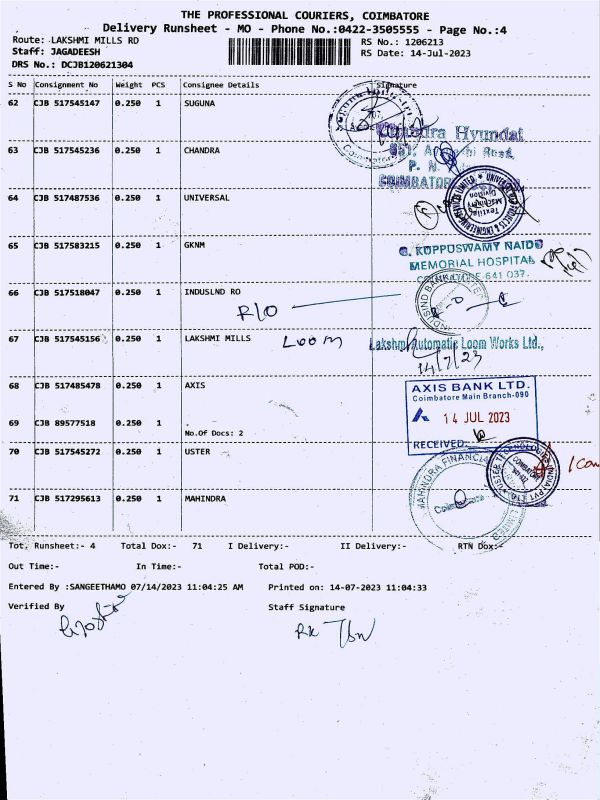 THE PROFESSIONAL COURIERS, COIMBATORE
Delivery Runsheet - MO - Phone No.:0422-3505555 - Page No.:4
Route: LAKSHMI MILLS RD RS No.: 1206213
Staff: JAGADEESH RS Date: 14-Jul-2023
DRS No.: DCJB120621304
S No Consignment No Weight PCS Consignee Details Signature
62 CJB 517545147 0.250 1 SUGUNA
Hyundai
63 CJB 517545236 0.250 1 CHANDRA
COIMBATOR
64 CJB 517487536 0.250 1 UNIVERSAL
Textile Machinery Division
65 CJB 517583215 0.250 1 GKNM
G. KUPPUSWAMY NAIDU
MEMORIAL HOSPITAL
COIMBATORE-641 037.
66 CJB 517518047 0.250 1 INDUSLND RO
R/O
INDUSIND BANK LIMITED
67 CJB 517545156 0.250 1 LAKSHMI MILLS LOOM Lakshmi Automatic Loom Works Ltd.,
14/7/23
68 CJB 517485478 0.250 1 AXIS
AXIS BANK LTD.
Coimbatore Main Branch-090
14 JUL 2023
RECEIVED:
69 CJB 89577518 0.250 1
No.Of Docs: 2
70 CJB 517545272 0.250 1 USTER
71 CJB 517295613 0.250 1 MAHINDRA
MAHINDRA FINANCIAL
Coimbatore
LIMITED
Tot. Runsheet:- 4 Total Dox:- 71 I Delivery:- II Delivery:- RTN Dox:-
Out Time:- In Time:- Total POD:-
Entered By :SANGEETHAMO 07/14/2023 11:04:25 AM Printed on: 14-07-2023 11:04:33
Verified By Staff Signature